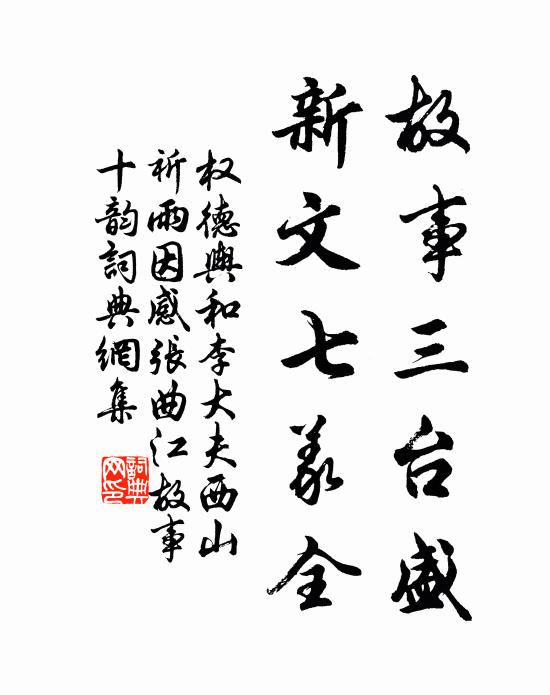 故事三台盛
新文七义全
权德舆和李大夫西山
祈雨因感张曲江故事
十韵词典網集
詞典网印